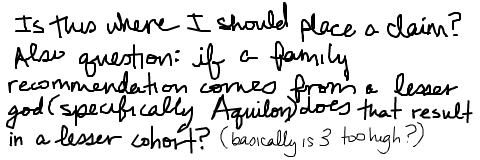 Is this where I should place a claim?
Also question: if a family
recommendation comes from a lesser
god (specifically Aquilon) does that result
in a lesser cohort? (basically is 3 too high?)